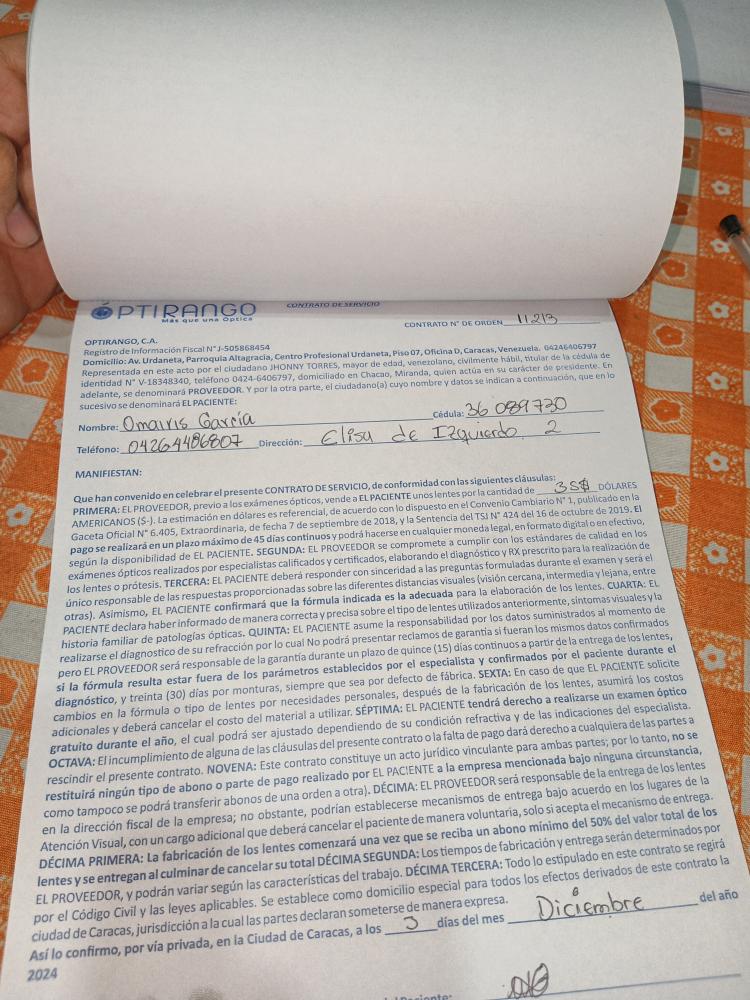 ÓPTIRANGO
Más que una Óptica
CONTRATO DE SERVICIO
CONTRATO N° DE ORDEN 11213
OPTIRANGO, C.A.
Registro de Información Fiscal N° J-505868454
Domicilio: Av. Urdaneta, Parroquia Altagracia, Centro Profesional Urdaneta, Piso 07, Oficina D, Caracas, Venezuela. 04246406797
Representada en este acto por el ciudadano JHONNY TORRES, mayor de edad, venezolano, civilmente hábil, titular de la cédula de
identidad N° V-18348340, teléfono 0424-6406797, domiciliado en Chacao, Miranda, quien actúa en su carácter de presidente. En
adelante, se denominará PROVEEDOR. Y por la otra parte, el ciudadano(a) cuyo nombre y datos se indican a continuación, que en lo
sucesivo se denominará EL PACIENTE:
Nombre: Omairis García Cédula: 36 089730
Teléfono: 04264486807 Dirección: Elisa de Izquierdo 2
MANIFIESTAN:
Que han convenido en celebrar el presente CONTRATO DE SERVICIO, de conformidad con las siguientes cláusulas:
PRIMERA: EL PROVEEDOR, previo a los exámenes ópticos, vende a EL PACIENTE unos lentes por la cantidad de 35$ DÓLARES
AMERICANOS ($-). La estimación en dólares es referencial, de acuerdo con lo dispuesto en el Convenio Cambiario N° 1, publicado en la
Gaceta Oficial N° 6.405, Extraordinaria, de fecha 7 de septiembre de 2018, y la Sentencia del TSJ N° 424 del 16 de octubre de 2019. El
pago se realizará en un plazo máximo de 45 días continuos y podrá hacerse en cualquier moneda legal, en formato digital o en efectivo,
según la disponibilidad de EL PACIENTE. SEGUNDA: EL PROVEEDOR se compromete a cumplir con los estándares de calidad en los
exámenes ópticos realizados por especialistas calificados y certificados, elaborando el diagnóstico y RX prescrito para la realización de
los lentes o prótesis. TERCERA: EL PACIENTE deberá responder con sinceridad a las preguntas formuladas durante el examen y será el
único responsable de las respuestas proporcionadas sobre las diferentes distancias visuales (visión cercana, intermedia y lejana, entre
otras). Asimismo, EL PACIENTE confirmará que la fórmula indicada es la adecuada para la elaboración de los lentes. CUARTA: EL
PACIENTE declara haber informado de manera correcta y precisa sobre el tipo de lentes utilizados anteriormente, síntomas visuales y la
historia familiar de patologías ópticas. QUINTA: EL PACIENTE asume la responsabilidad por los datos suministrados al momento de
realizarse el diagnostico de su refracción por lo cual No podrá presentar reclamos de garantía si fueran los mismos datos confirmados
pero EL PROVEEDOR será responsable de la garantía durante un plazo de quince (15) días continuos a partir de la entrega de los lentes,
si la fórmula resulta estar fuera de los parámetros establecidos por el especialista y confirmados por el paciente durante el
diagnóstico, y treinta (30) días por monturas, siempre que sea por defecto de fábrica. SEXTA: En caso de que EL PACIENTE solicite
cambios en la fórmula o tipo de lentes por necesidades personales, después de la fabricación de los lentes, asumirá los costos
adicionales y deberá cancelar el costo del material a utilizar. SÉPTIMA: EL PACIENTE tendrá derecho a realizarse un examen óptico
gratuito durante el año, el cual podrá ser ajustado dependiendo de su condición refractiva y de las indicaciones del especialista.
OCTAVA: El incumplimiento de alguna de las cláusulas del presente contrato o la falta de pago dará derecho a cualquiera de las partes a
rescindir el presente contrato. NOVENA: Este contrato constituye un acto jurídico vinculante para ambas partes; por lo tanto, no se
restituirá ningún tipo de abono o parte de pago realizado por EL PACIENTE a la empresa mencionada bajo ninguna circunstancia,
como tampoco se podrá transferir abonos de una orden a otra). DÉCIMA: EL PROVEEDOR será responsable de la entrega de los lentes
en la dirección fiscal de la empresa; no obstante, podrían establecerse mecanismos de entrega bajo acuerdo en los lugares de la
Atención Visual, con un cargo adicional que deberá cancelar el paciente de manera voluntaria, solo si acepta el mecanismo de entrega.
DÉCIMA PRIMERA: La fabricación de los lentes comenzará una vez que se reciba un abono mínimo del 50% del valor total de los
lentes y se entregan al culminar de cancelar su total DÉCIMA SEGUNDA: Los tiempos de fabricación y entrega serán determinados por
EL PROVEEDOR, y podrán variar según las características del trabajo. DÉCIMA TERCERA: Todo lo estipulado en este contrato se regirá
por el Código Civil y las leyes aplicables. Se establece como domicilio especial para todos los efectos derivados de este contrato la
ciudad de Caracas, jurisdicción a la cual las partes declaran someterse de manera expresa.
Así lo confirmo, por vía privada, en la Ciudad de Caracas, a los 3 días del mes Diciembre del año
2024